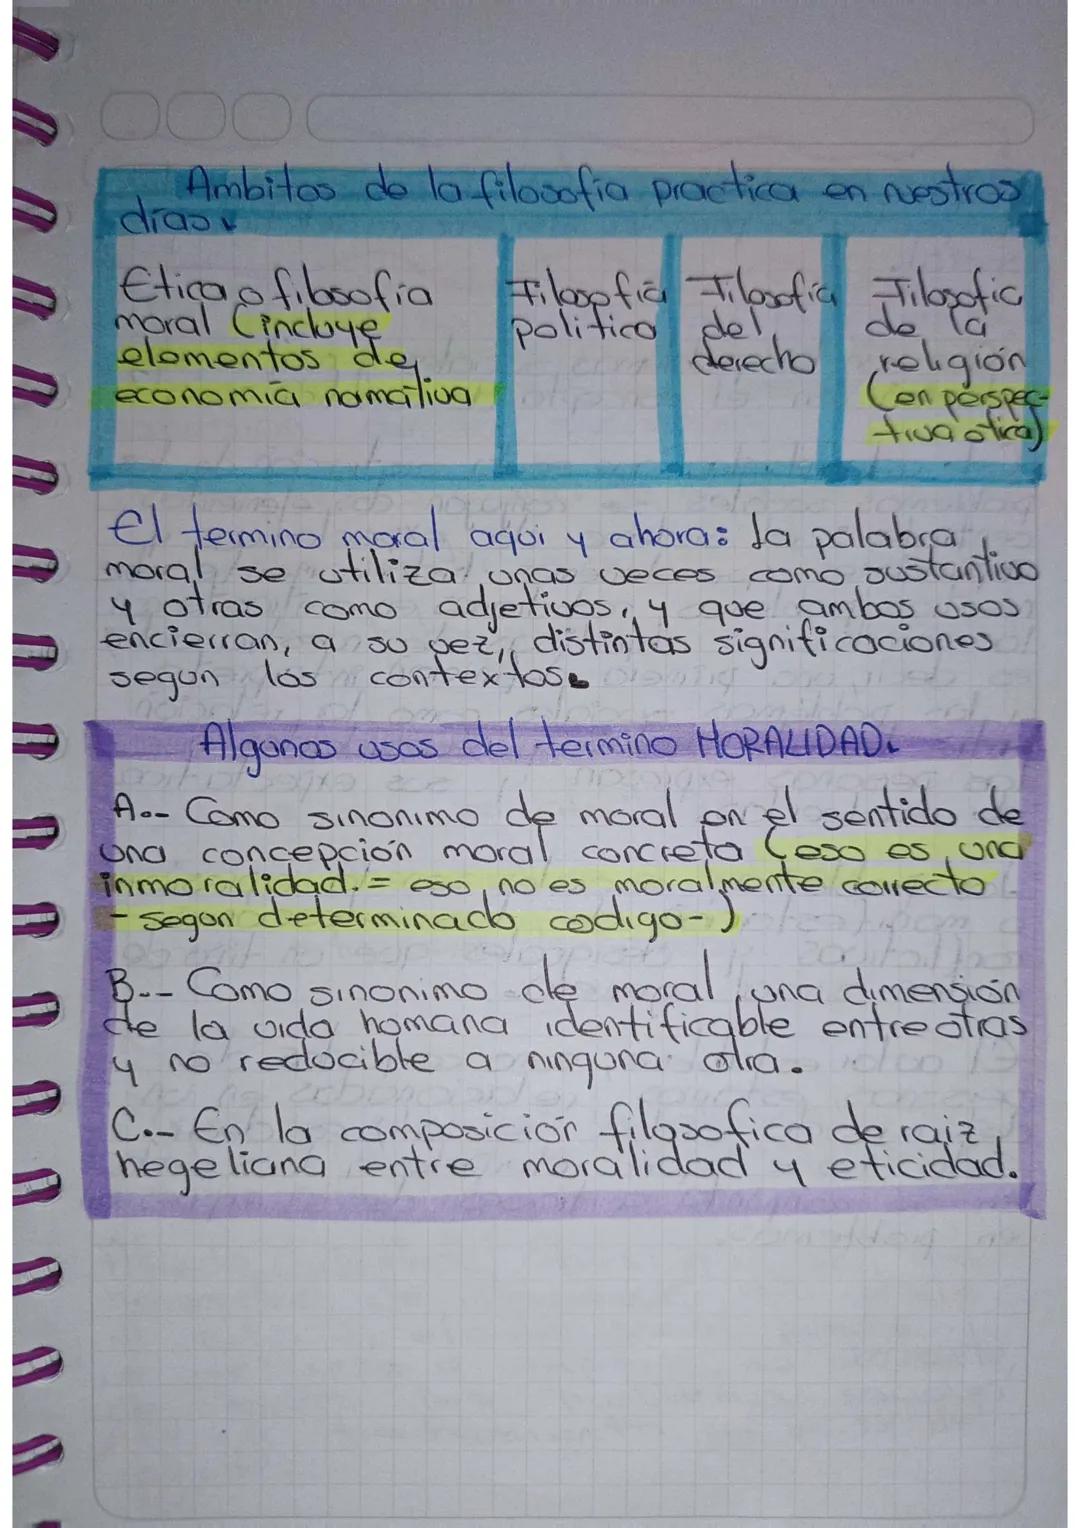 Ambitos de la filosofia practica en nuestros
días.
Etica o filosofía
moral (incluye
elementos de
economía normativa
Filosofía
politica
Filosofía
del
derecho
Filosofia
de la
religión
(en perspec-
tiva etica)
El termino moral aqui y ahora: La palabra
moral se utiliza unas veces como sustantivo
y otras como adjetivos, y que ambos usos
encierran, a su vez, distintas significaciones
segun los contextos.
Algunos usos del termino MORALIDAD.
A.- Como sinonimo de moral en el sentido de
una concepción moral concreta (eso es una
inmoralidad. = eso no es moralmente correcto
-segun determinado codigo-)
B.- Como sinonimo de moral, una dimensión
de la vida humana identificable entre otras
y no reducible a ninguna otra.
C.- En la composición filosofica de raiz
hegeliana entre moralidad y eticidad.